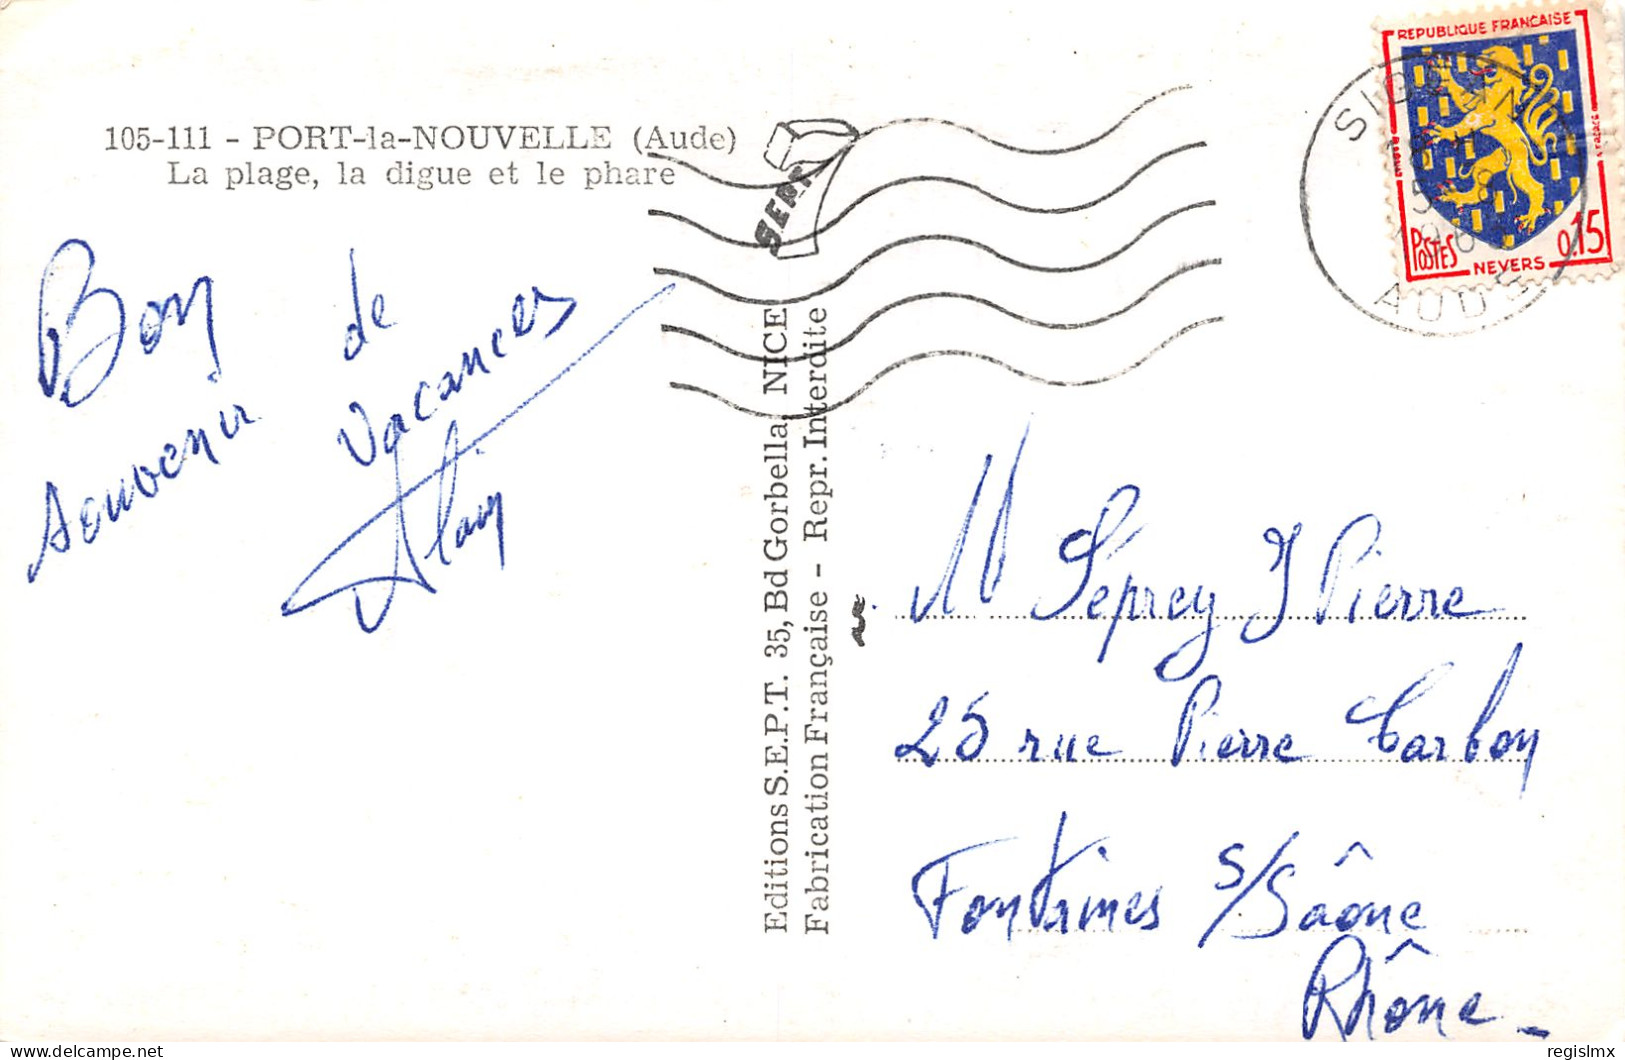 105-111 - PORT-la-NOUVELLE (Aude)
La plage, la digue et le phare
Bon
souvenir de
vacances
Alain
Editions S.E.P.T. 35, Bd Gorbella, NICE
Fabrication Française - Repr. Interdite
SEPT
REPUBLIQUE FRANCAISE
POSTES
NEVERS
0.15
AUDE
M Seprey J Pierre
25 rue Pierre Carbon
Fontaines s/Saône
Rhône
regislmx